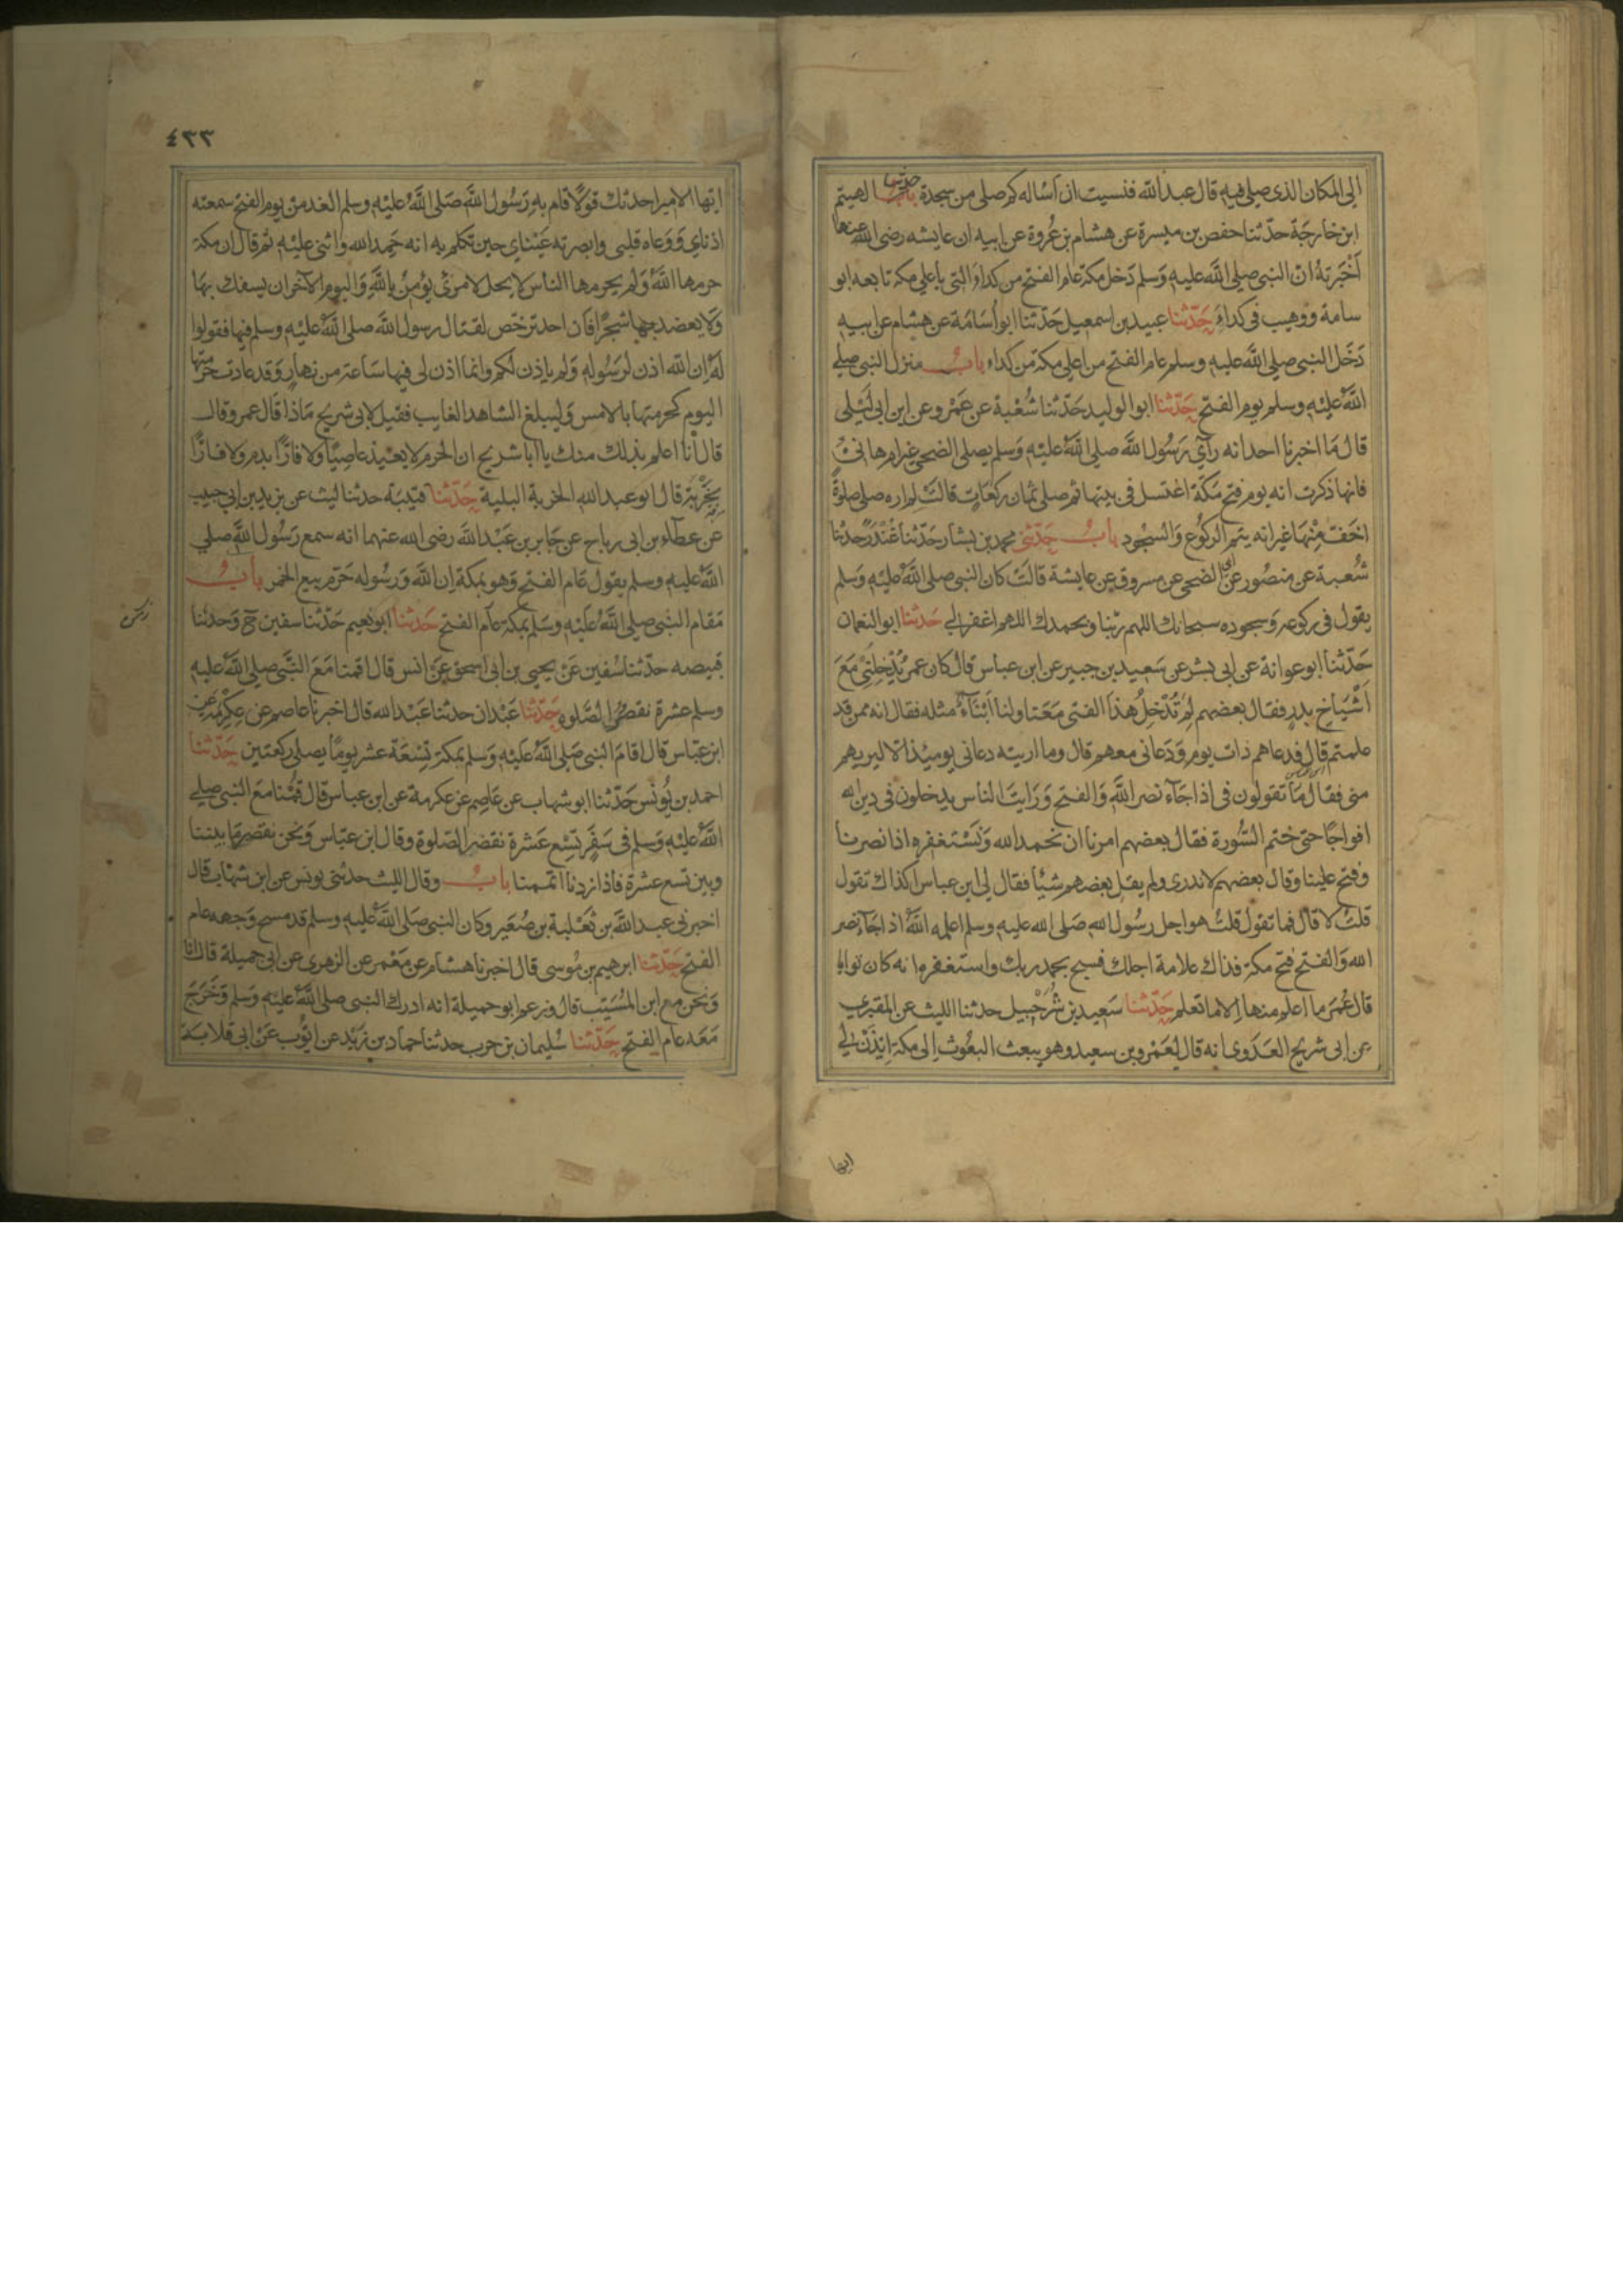 الى المكان الذى صلى فيه قال عبد الله فنسيت ان اساله كم صلى من سجدة باب حدثنا الهيثم
ابن خارجة حدثنا حفص بن ميسرة عن هشام بن عروة عن ابيه ان عايشه رضى الله عنها
اخبرته ان النبى صلى الله عليه وسلم دخل مكة عام الفتح من كداء التى باعلى مكة تابعه ابو
سامة ووهيب فى كداء حدثنا عبيد بن اسمعيل حدثنا ابو اسامة عن هشام عن ابيه
دخل النبى صلى الله عليه وسلم عام الفتح من اعلى مكة من كداء باب منزل النبى صلى
الله عليه وسلم يوم الفتح حدثنا ابو الوليد حدثنا شعبة عن عمرو عن ابن ابى ليلى
قال ما اخبرنا احد انه راى رسول الله صلى الله عليه وسلم يصلى الضحى غير ام هانئ
فانها ذكرت انه يوم فتح مكة اغتسل فى بيتها ثم صلى ثمان ركعات قالت لم اره صلى صلوة
اخف منها غير انه يتم الركوع والسجود باب حدثنى محمد بن بشار حدثنا غندر حدثنا
شعبة عن منصور عن ابى الضحى عن مسروق عن عايشة قالت كان النبى صلى الله عليه وسلم
يقول فى ركوعه وسجوده سبحانك اللهم ربنا وبحمدك اللهم اغفر لى حدثنا ابو النعمان
حدثنا ابو عوانة عن ابى بشر عن سعيد بن جبير عن ابن عباس قال كان عمر يدخلنى مع
اشياخ بدر فقال بعضهم لم تدخل هذا الفتى معنا ولنا ابناء مثله فقال انه ممن قد
علمتم قال فدعاهم ذات يوم ودعانى معهم قال وما اريته دعانى يوميذ الا ليريهم
منى فقال ما تقولون فى اذا جاء نصر الله والفتح ورايت الناس يدخلون فى دين الله
افواجا حتى ختم السورة فقال بعضهم امرنا ان نحمد الله ونستغفره اذا نصرنا
وفتح علينا وقال بعضهم لا ندرى ولم يقل بعضهم شيئا فقال لى ابن عباس اكذاك تقول
قلت لا قال فما تقول قلت هو اجل رسول الله صلى الله عليه وسلم اعلمه الله اذا جاء نصر
الله والفتح فتح مكة فذاك علامة اجلك فسبح بحمد ربك واستغفره انه كان توابا
قال عمر ما اعلم منها الا ما تعلم حدثنا سعيد بن شرحبيل حدثنا الليث عن المقبرى
عن ابى شريح العدوى انه قال لعمرو بن سعيد وهو يبعث البعوث الى مكة ايذن لى
ايها
٤٣٣
ايها الامير احدثك قولا قام به رسول الله صلى الله عليه وسلم الغد من يوم الفتح سمعته
اذناى ووعاه قلبى وابصرته عيناى حين تكلم به انه حمد الله واثنى عليه ثم قال ان مكة
حرمها الله ولم يحرمها الناس لا يحل لامرئ يؤمن بالله واليوم الآخر ان يسفك بها
ولا يعضد بها شجرا فان احد ترخص لقتال رسول الله صلى الله عليه وسلم فيها فقولوا
له ان الله اذن لرسوله ولم ياذن لكم وانما اذن لى فيها ساعة من نهار وقد عادت حرمتها
اليوم كحرمتها بالامس وليبلغ الشاهد الغايب فقيل لابى شريح ماذا قال عمرو قال
قال انا اعلم بذلك منك يا ابا شريح ان الحرم لا يعيذ عاصيا ولا فارا بدم ولا فارا
بخربة قال ابو عبد الله الخربة البلية حدثنا قتيبة حدثنا ليث عن يزيد بن ابى حبيب
عن عطاء بن ابى رباح عن جابر بن عبد الله رضى الله عنهما انه سمع رسول الله صلى
الله عليه وسلم يقول عام الفتح وهو بمكة ان الله ورسوله حرم بيع الخمر باب
مقام النبى صلى الله عليه وسلم بمكة عام الفتح حدثنا ابو نعيم حدثنا سفين ح وحدثنا
قبيصه حدثنا سفين عن يحيى بن ابى اسحق عن انس قال اقمنا مع النبى صلى الله عليه
وسلم عشرة نقصر الصلوة حدثنا عبدان حدثنا عبد الله قال اخبرنا عاصم عن عكرمة عن
ابن عباس قال اقام النبى صلى الله عليه وسلم بمكة تسعة عشر يوما يصلى ركعتين حدثنا
احمد بن يونس حدثنا ابو شهاب عن عاصم عن عكرمة عن ابن عباس قال قمنا مع النبى صلى
الله عليه وسلم فى سفر تسع عشرة نقصر الصلوة وقال ابن عباس ونحن نقصر ما بيننا
وبين تسع عشرة فاذا زدنا اتممنا باب وقال الليث حدثنى يونس عن ابن شهاب قال
اخبرنى عبد الله بن ثعلبة بن صعير وكان النبى صلى الله عليه وسلم قد مسح وجهه عام
الفتح حدثنا ابرهيم بن موسى قال اخبرنا هشام عن معمر عن الزهرى عن ابى جميلة قال انا
ونحن مع ابن المسيب قال وزعم ابو جميلة انه ادرك النبى صلى الله عليه وسلم وخرج
معه عام الفتح حدثنا سليمان بن حرب حدثنا حماد بن زيد عن ايوب عن ابى قلابة